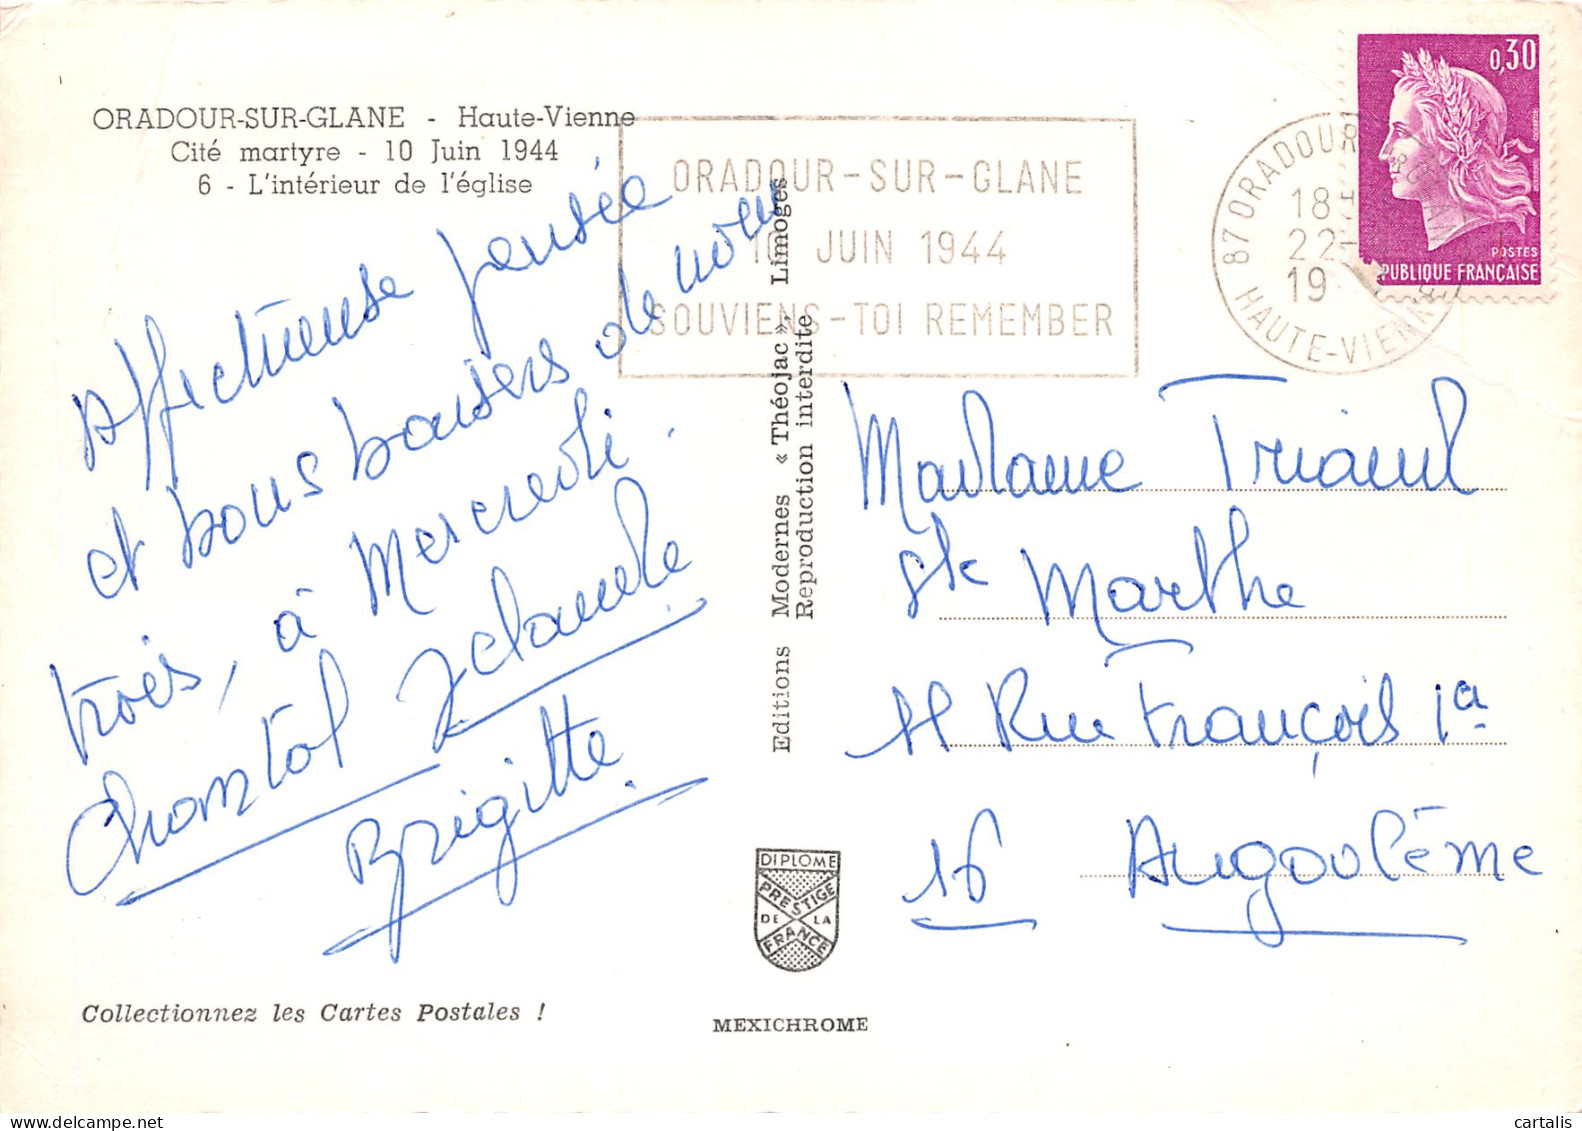 ORADOUR-SUR-GLANE - Haute-Vienne
Cité martyre - 10 Juin 1944
6 - L'intérieur de l'église
Affectueuse pensée
et bons baisers de nous
trois, à Mercredi.
Chantal Jclaude
Brigitte
Collectionnez les Cartes Postales !
ORADOUR-SUR-GLANE
10 JUIN 1944
SOUVIENS-TOI REMEMBER
Editions Modernes « Théojac », Limoges
Reproduction interdite
DIPLOME
PRESTIGE
DE LA
FRANCE
MEXICHROME
87 ORADOUR
18H
22-
19
HAUTE-VIENNE
0,30
POSTES
PUBLIQUE FRANÇAISE
Madame
Ste Marthe
11 Rue François 1a
16 Angoulême
cartalis